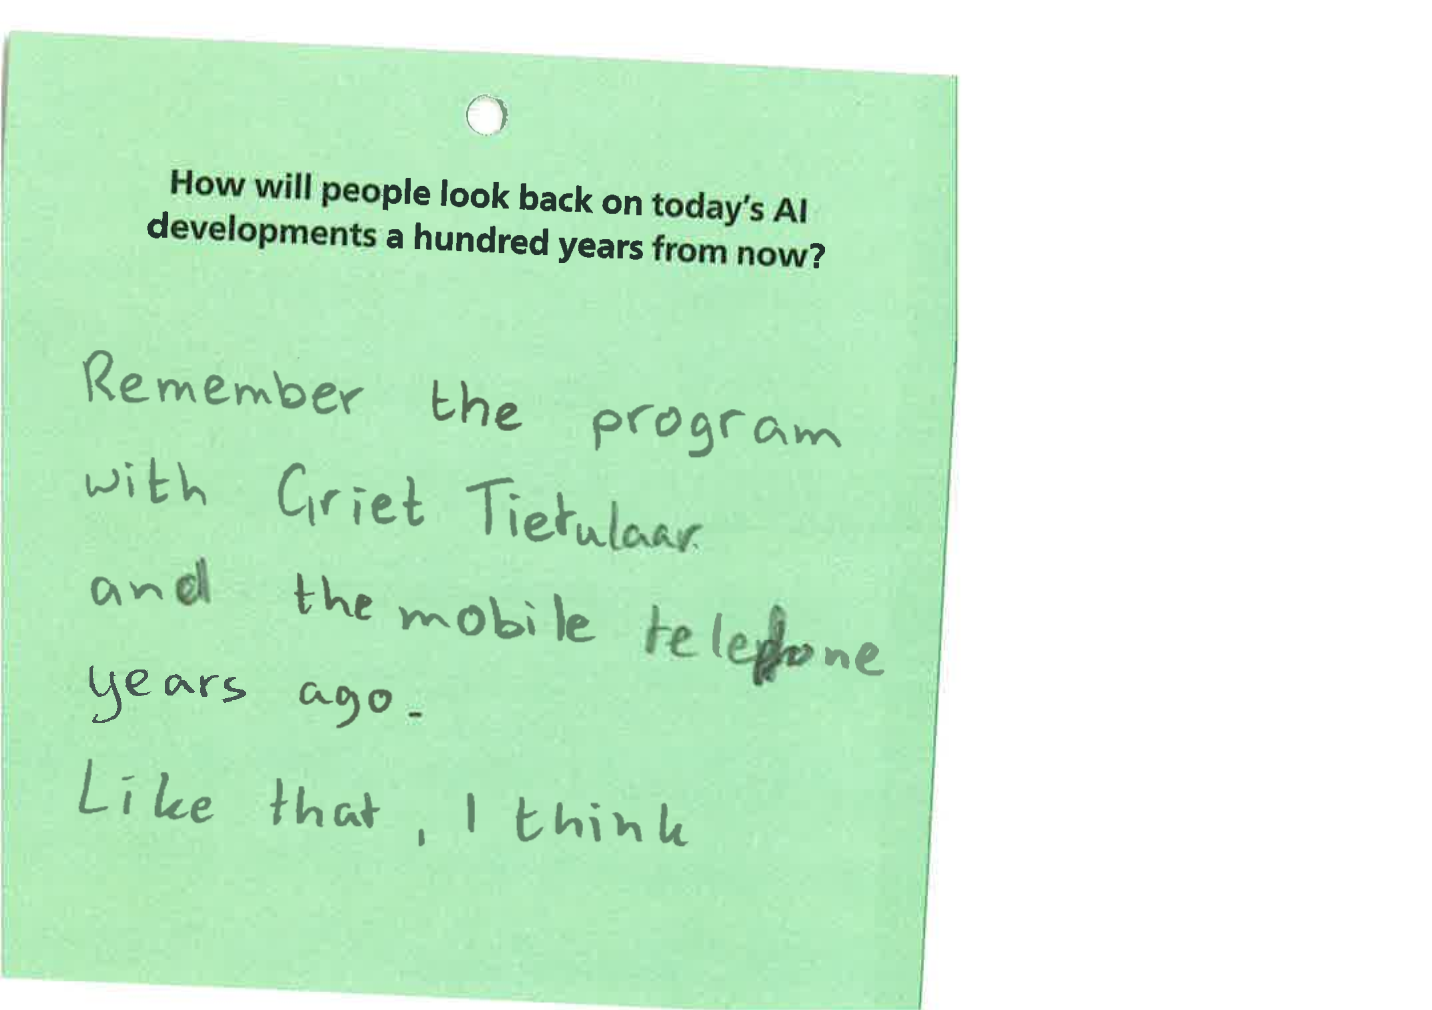 How will people look back on today's AI
developments a hundred years from now?
Remember the program
with Griet Tietulaar
and the mobile telephone
years ago.
Like that, I think